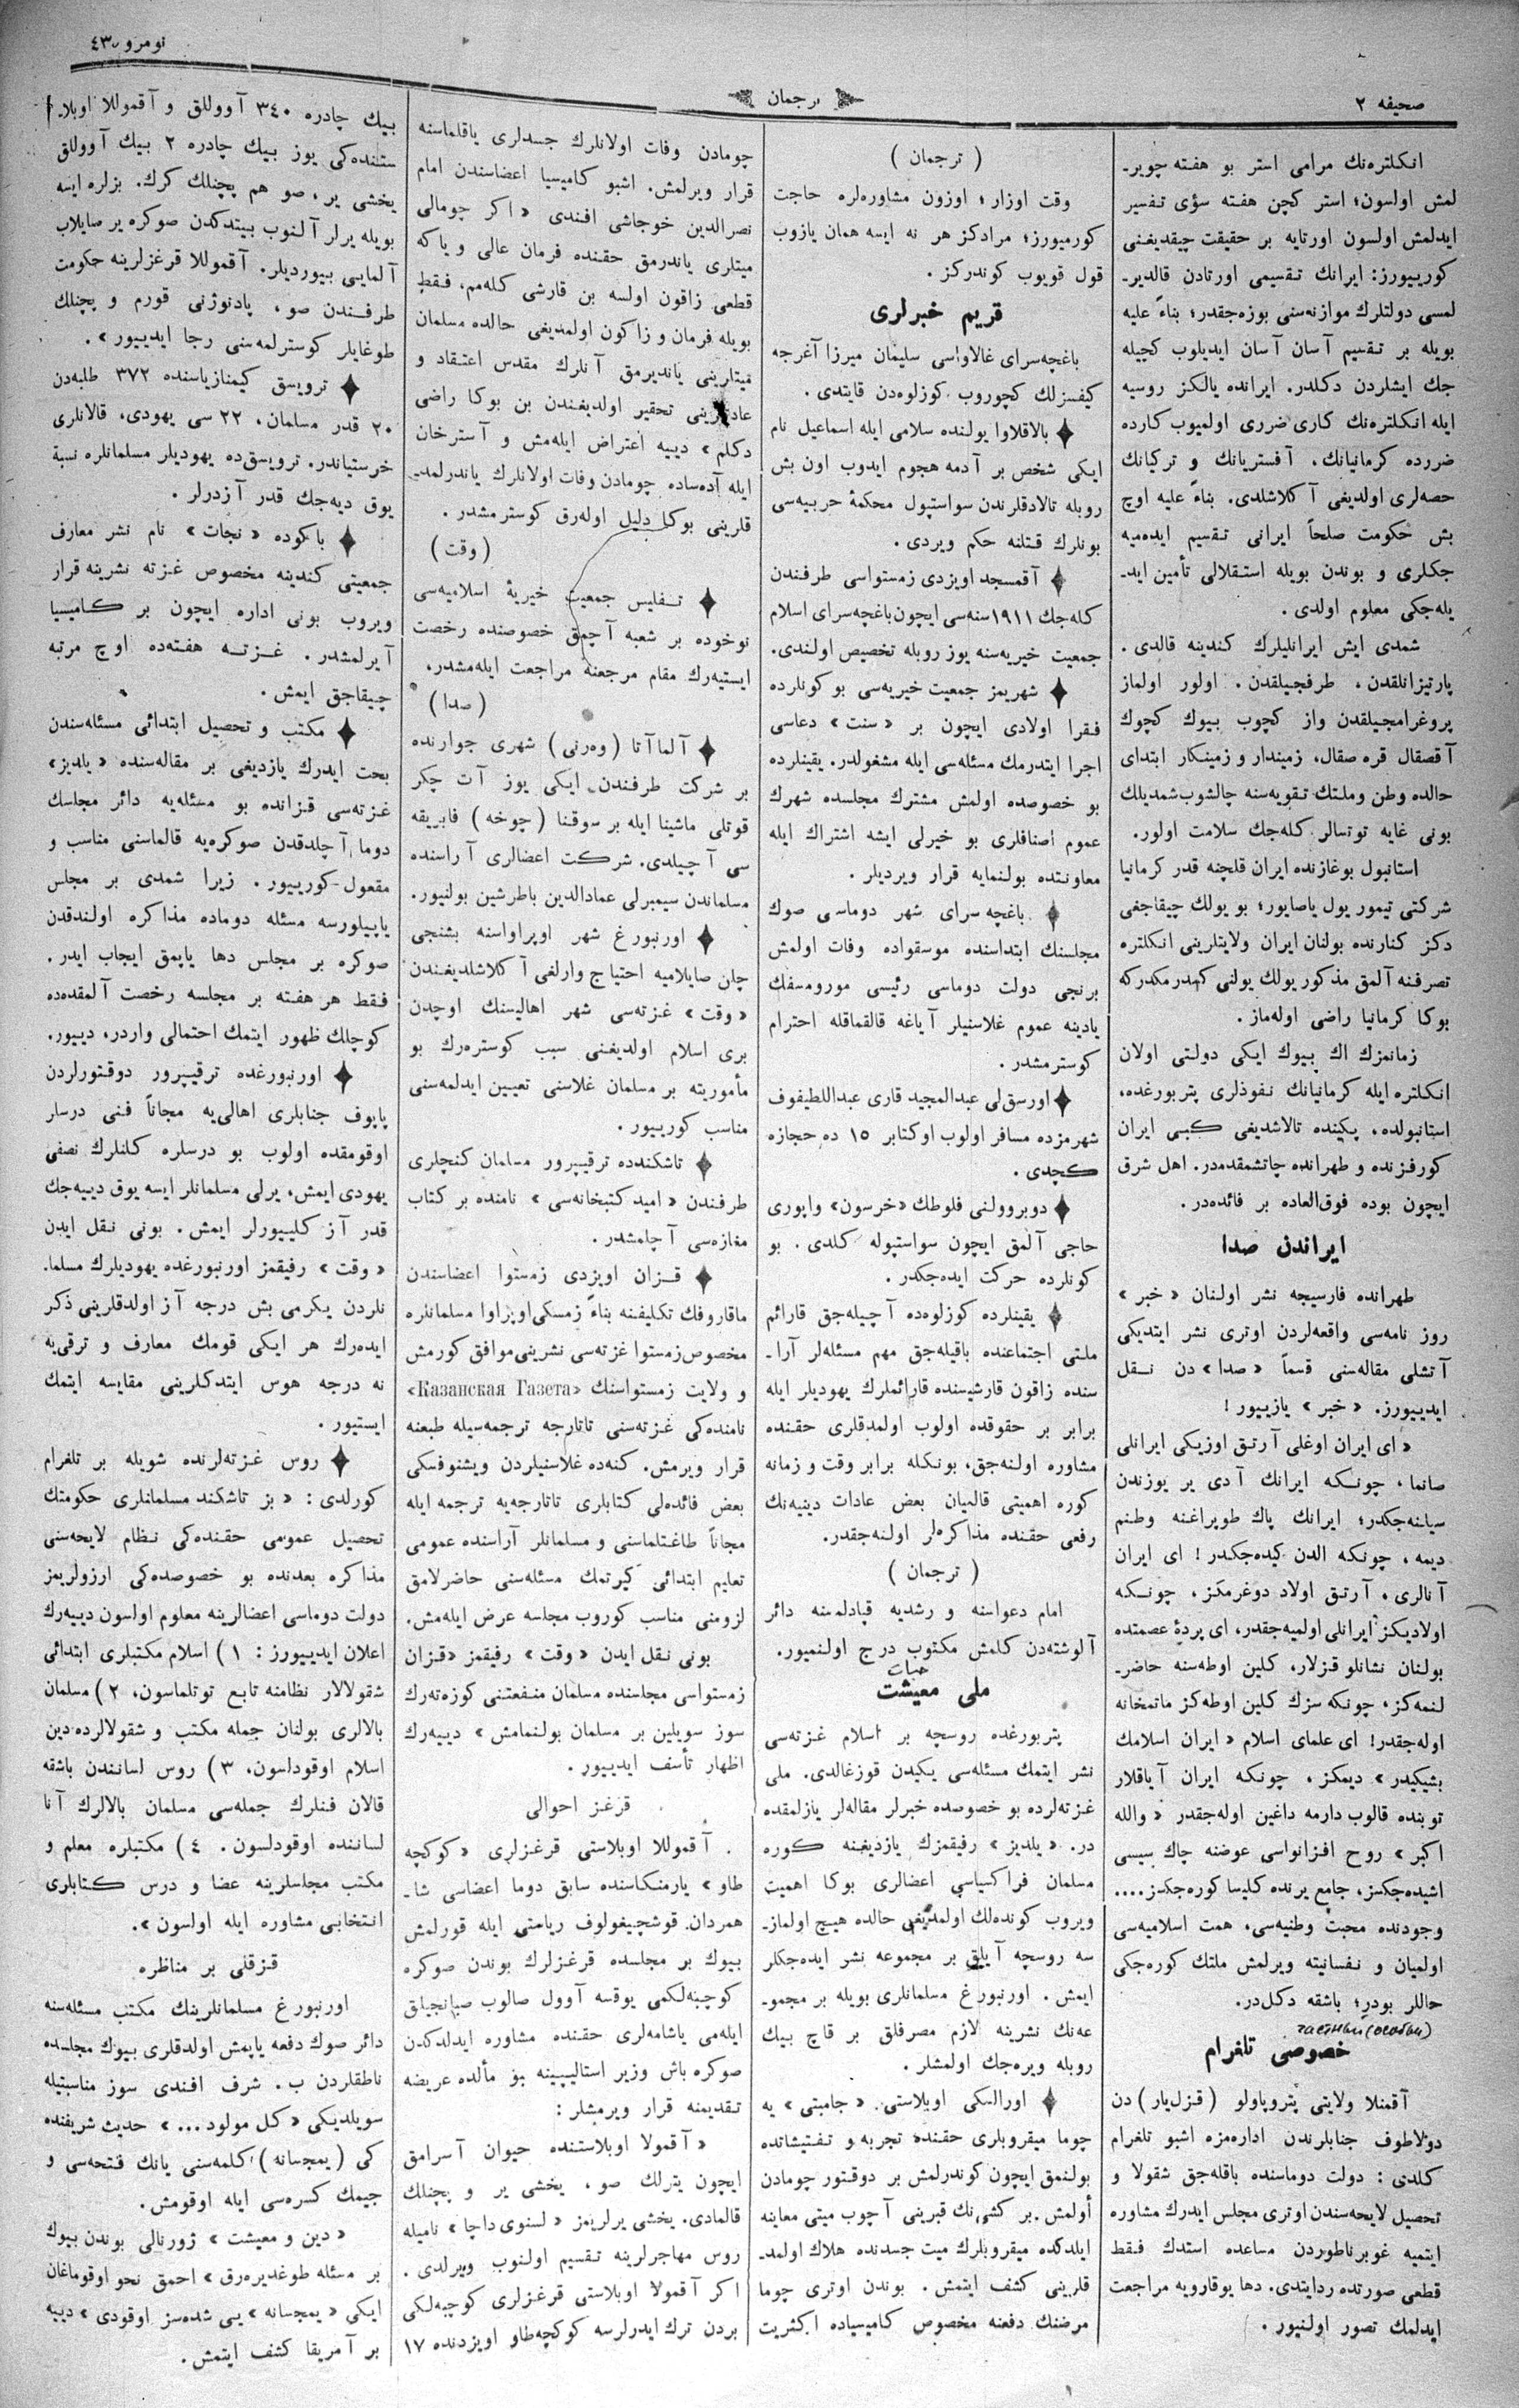 صحیفه ٢
ترجمان
نومرو ٤٣
انکلتره‌نك مرامی استر بو هفته چویر۔
لمش اولسون؛ استر کچن هفته سؤی تفسیر
ایدلمش اولسون اورتایه بر حقیقت چیقدیغنی
کوریـیورز: ایرانك تقسیمی اورتادن قالدیر۔
لمسی دولتلرك موازنه‌سنی بوزه‌جقدر؛ بناءً علیه
بویله بر تقسیم آسان آسان ایدیلوب کچیله
جك ایشلردن دکلدر. ایرانده یالکز روسیه
ایله انکلتره‌نك کاری ضرری اولمیوب کارده
ضررده کرمانیانك، آفستریانك و ترکیانك
حصه‌لری اولدیغی آکلاشلدی. بناءً علیه اوچ
بش حکومت صلحاً ایرانی تقسیم ایده‌میه
جکلری و بوندن بویله استقلالی تأمین اید۔
یله‌جکی معلوم اولدی.
شمدی ایش ایرانلیلرك کندینه قالدی.
پارتیزانلقدن، طرفچیلقدن. اولور اولماز
پروغرامجیلقدن واز کچوب بیوك کچوك
آقصقال قره صقال، زمیندار و زمینکار ابتدای
حالده وطن وملتك تقویه‌سنه چالشوب شمدیلك
بونی غایه توتسالر کله‌جك سلامت اولور.
استانبول بوغازنده ایران قلچنه قدر کرمانیا
شرکتی تیمور یول یاصایور؛ بو یولك چیقاجغی
دکز کنارنده بولنان ایران ولایتلرینی انکلتره
تصرفنه آلمق مذکور یولك یولنی کمدرمکدرکه
بوکا کرمانیا راضی اوله‌ماز.
زمانمزك اك بیوك ایکی دولتی اولان
انکلتره ایله کرمانیانك نفوذلری پتربورغده،
استانبولده، پکینده تالاشدیغی کبی ایران
کورفزنده و طهرانده چاتشمقده‌در. اهل شرق
ایچون بوده فوق‌العاده بر فائده‌در.
ایراندن صدا
طهرانده فارسیچه نشر اولنان « خبر »
روز نامه‌سی واقعه‌لردن اوتری نشر ایتدیکی
آتشلی مقاله‌سنی قسماً « صدا » دن نقل
ایدیـیورز. « خبر » یازیـیور!
« ای ایران اوغلی آرتق اوزیکی ایرانلی
صانما، چونکه ایرانك آدی یر یوزندن
سیلنه‌جکدر؛ ایرانك پاك طوپراغنه وطنم
دیمه، چونکه الدن کیده‌جکدر! ای ایران
آنالری. آرتق اولاد دوغرمکز، چونکه
اولادیکز ایرانلی اولمیه‌جقدر، ای پردۀ عصمتده
بولنان نشانلو قزلار، کلین اوطه‌سنه حاضر۔
لنمه‌کز، چونکه سزك کلین اوطه‌کز ماتمخانه
اوله‌جقدر! ای علمای اسلام « ایران اسلامك
بشیکیدر » دیمکز، چونکه ایران آیاقلار
توبنده قالوب دارمه داغین اوله‌جقدر « والله
اکبر » روح افزانواسی عوضنه چاك سیسی
اشیده‌جکسز، جامع یرنده کلیسا کوره‌جکسز....
وجودنده محبت وطنیه‌سی، همت اسلامیه‌سی
اولمیان و نفسانیته ویرلمش ملتك کوره‌جکی
حاللر بودر؛ باشقه دکل‌در.
частный (особый)
خصوصی تلغرام
آقمنلا ولایتی پتروپاولو ( قزل‌یار ) دن
دولاطوف جنابلرندن اداره‌مزه اشبو تلغرام
کلدی : دولت دوماسنده باقله‌جق شقولا و
تحصیل لایحه‌سندن اوتری مجلس ایدرك مشاوره
ایتمیه غوبرناطوردن مساعده استدك فقط
قطعی صورتده ردایتدی. دها یوقارویه مراجعت
ایدلمك تصور اولنیور.
( ترجمان )
وقت اوزار؛ اوزون مشاوره‌لره حاجت
کورمیورز؛ مرادکز هر نه ایسه همان یازوب
قول قویوب کوندرکز.
قریم خبرلری
باغچه‌سرای غالاواسی سلیمان میرزا آغرجه
کیفسزلك کچوروب کوزلوه‌دن قایتدی.
بالاقلاوا یولنده سلامی ایله اسماعیل نام
ایکی شخص بر آدمه هجوم ایدوب اون بش
روبله تالادقلرندن سواستپول محکمۀ حربیه‌سی
بونلرك قتلنه حکم ویردی.
آقمسجد اویزدی زمستواسی طرفندن
کله‌جك ١٩١١ سنه‌سی ایچون باغچه‌سرای اسلام
جمعیت خیریه‌سنه یوز روبله تخصیص اولندی.
شهریمز جمعیت خیریه‌سی بو کونلرده
فقرا اولادی ایچون بر « سنت » دعاسی
اجرا ایتدرمك مسئله‌سی ایله مشغولدر. یقینلرده
بو خصوصده اولمش مشترك مجلسده شهرك
عموم اصنافلری بو خیرلی ایشه اشتراك ایله
معاونتده بولنمایه قرار ویردیلر.
باغچه سرای شهر دوماسی صوك
مجلسنك ابتداسنده موسقواده وفات اولمش
برنجی دولت دوماسی رئیسی مورومسفك
یادینه عموم غلاسنیلر آیاغه قالقماقله احترام
کوسترمشدر.
اورسق‌لی عبدالمجید قاری عبداللطیفوف
شهرمزده مسافر اولوب اوکتابر ١٥ ده حجازه
کچدی.
دوبروولنی فلوطك «خرسون» واپوری
حاجی آلمق ایچون سواستپوله کلدی. بو
کونلرده حرکت ایده‌جکدر.
یقینلرده کوزلوه‌ده آچیله‌جق قارائم
ملتی اجتماعنده باقیله‌جق مهم مسئله‌لر آرا۔
سنده زاقون قارشیسنده قارائملرك یهودیلر ایله
برابر بر حقوقده اولوب اولمدقلری حقنده
مشاوره اولنه‌جق، بونکله برابر وقت و زمانه
کوره اهمیتی قالمیان بعض عادات دینیه‌نك
رفعی حقنده مذاکره‌لر اولنه‌جقدر.
( ترجمان )
امام دعواسنه و رشدیه قپادلمسنه دائر
آلوشته‌دن کلمش مکتوب درج اولنمیور.
حیات
ملی معیشت
پتربورغده روسچه بر اسلام غزته‌سی
نشر ایتمك مسئله‌سی یکیدن قوزغالدی. ملی
غزته‌لرده بو خصوصده خبرلر مقاله‌لر یازلمقده
در. « یلدیز » رفیقمزك یازدیغنه کوره
مسلمان فراکسیاسی اعضالری بوکا اهمیت
ویروب کونده‌لك اولمدیغی حالده هیچ اولماز۔
سه روسچه آیلق بر مجموعه نشر ایده‌جکلر
ایمش. اورنبورغ مسلمانلری بویله بر مجمو۔
عه‌نك نشرینه لازم مصرفلق بر قاچ بیك
روبله ویره‌جك اولمشلر.
اورالسکی اوبلاستی. « جامبتی » یه
چوما میقروبلری حقنده تجربه و تفتیشاتده
بولنمق ایچون کوندرلمش بر دوقتور چومادن
أولمش بر کشی‌نك قبرینی آچوب میتی معاینه
ایلدکده میقروبلرك میت جسدنده هلاك اولمد۔
قلرینی کشف ایتمش. بوندن اوتری چوما
مرضنك دفعنه مخصوص کامیسیاده اکثریت
چومادن وفات اولانلرك جسدلری یاقلماسنه
قرار ویرلمش. اشبو کامیسیا اعضاسندن امام
نصرالدین خوجاشی افندی « اکر چومالی
میتلری یاندرمق حقنده فرمان عالی و یاکه
قطعی زاقون اولسه بن قارشی کله‌مم، فقط
بویله فرمان و زاکون اولمدیغی حالده مسلمان
میتلرینی یاندیرمق آنلرك مقدس اعتقاد و
عادتلرینی تحقیر اولدیغندن بن بوکا راضی
دکلم » دییه اعتراض ایله‌مش و آسترخان
ایله آده‌ساده چومادن وفات اولانلرك یاندرلمد۔
قلرینی بوکا دلیل اوله‌رق کوسترمشدر.
( وقت )
تفلیس جمعیت خیریۀ اسلامیه‌سی
نوخوده بر شعبه آچمق خصوصنده رخصت
ایستیه‌رك مقام مرجعنه مراجعت ایله‌مشدر.
( صدا )
آلماآتا ( وه‌رنی ) شهری جوارنده
بر شرکت طرفندن ایکی یوز آت چکر
قوتلی ماشینا ایله بر سوقنا ( چوخه ) فابریقه
سی آچیلدی. شرکت اعضالری آراسنده
مسلماندن سیمبرلی عمادالدین باطرشین بولنیور.
اورنبورغ شهر اوپراواسنه بشنجی
چلن صایلامیه احتیاج وارلغی آکلاشلدیغندن
« وقت » غزته‌سی شهر اهالیسنك اوچدن
بری اسلام اولدیغنی سبب کوستره‌رك بو
مأموریته بر مسلمان غلاسنی تعیین ایدلمه‌سنی
مناسب کوریـیور.
تاشکندده ترقیپرور مسلمان کنچلری
طرفندن « امید کتبخانه‌سی » نامنده بر کتاب
مغازه‌سی آچلمشدر.
قزان اویزدی زمستوا اعضاسندن
ماقاروفك تکلیفنه بناءً زمسکی اوپراوا مسلمانلره
مخصوص زمستوا غزته‌سی نشرینی موافق کورمش
و ولایت زمستواسنك «Казанская Газета»
نامنده‌کی غزته‌سنی تاتارجه ترجمه‌سیله طبعنه
قرار ویرمش. کنه‌ده غلاسنیلردن ویشنوفسکی
بعض فائده‌لی کتابلری تاتارجه‌یه ترجمه ایله
مجاناً طاغتلماسنی و مسلمانلر آراسنده عمومی
تعلیم ابتدائی کیرتمك مسئله‌سنی حاضرلامق
لزومنی مناسب کوروب مجلسه عرض ایله‌مش.
بونی نقل ایدن « وقت » رفیقمز «قزان
زمستواسی مجلسنده مسلمان منفعتنی کوزه‌ته‌رك
سوز سویلین بر مسلمان بولنمامش » دییه‌رك
اظهار تأسف ایدیـیور.
قزغز احوالی
آقموللا اوبلاستی قرغزلری « کوکچه
طاو » یارمنکاسنده سابق دوما اعضاسی شا۔
همردان قوشچیغولوف ریاستی ایله قورلمش
بیوك بر مجلسده قرغزلرك بوندن صوکره
کوچبه‌لکمی یوقسه آوول صالوب صپانجیلق
ایله‌می یاشامه‌لری حقنده مشاوره ایدلدکدن
صوکره باش وزیر استالیپینه بو مألده عریضه
تقدیمنه قرار ویرمشلر :
« آقمولا اوبلاستنده حیوان آسرامق
ایچون یترلك صو، یخشی یر و پچنلك
قالمادی. یخشی یرلریمز « لسنوی داچا » نامیله
روس مهاجرلرینه تقسیم اولنوب ویرلدی.
اکر آقمولا اوبلاستی قرغزلری کوچبه‌لکی
بردن ترك ایدرلرسه کوکچه‌طاو اویزدنده ١٧
بیك چادره ٣٤٠ آووللق و آقموللا اوبلا۔
ستنده‌کی یوز بیك چادره ٢ بیك آووللق
یخشی یر، صو هم پچنلك کرك. بزلره ایسه
بویله یرلر آلنوب بیتدکدن صوکره یر صایلاب
آلمایی بیوردیلر. آقموللا قرغزلرینه حکومت
طرفندن صو، پادنوژنی قورم و پچنلك
طوغایلر کوسترلمه‌سنی رجا ایدیـیور ».
ترویسق کیمنازیاسنده ٣٧٢ طلبه‌دن
٢٠ قدر مسلمان، ٢٢ سی یهودی، قالانلری
خرستیاندر. ترویسق‌ده یهودیلر مسلمانلره نسبة
یوق دیه‌جك قدر آزدرلر.
باکوده « نجات » نام نشر معارف
جمعیتی کندینه مخصوص غزته نشرینه قرار
ویروب بونی اداره ایچون بر کامیسیا
آیرلمشدر. غزته هفته‌ده اوچ مرتبه
چیقاجق ایمش.
مکتب و تحصیل ابتدائی مسئله‌سندن
بحث ایدرك یازدیغی بر مقاله‌سنده « یلدیز »
غزته‌سی قزانده بو مسئله‌یه دائر مجلسك
دوما آچلدقدن صوکره‌یه قالماسنی مناسب و
مقعول کوریـیور. زیرا شمدی بر مجلس
یاپیلورسه مسئله دوماده مذاکره اولندقدن
صوکره بر مجلس دها یاپمق ایجاب ایدر.
فقط هر هفته بر مجلسه رخصت آلمقده‌ده
کوچلك ظهور ایتمك احتمالی واردر، دییور.
اورنبورغده ترقیپرور دوقتورلردن
پاپوف جنابلری اهالی‌یه مجاناً فنی درسلر
اوقومقده اولوب بو درسلره کلنلرك نصفی
یهودی ایمش، یرلی مسلمانلر ایسه یوق دییه‌جك
قدر آز کلیـیورلر ایمش. بونی نقل ایدن
« وقت » رفیقمز اورنبورغده یهودیلرك مسلما۔
نلردن یکرمی بش درجه آز اولدقلرینی ذکر
ایده‌رك هر ایکی قومك معارف و ترقی‌یه
نه درجه هوس ایتدکلرینی مقایسه ایتمك
ایستیور.
روس غزته‌لرنده شویله بر تلغرام
کورلدی : « بز تاشکند مسلمانلری حکومتك
تحصیل عمومی حقنده‌کی نظام لایحه‌سنی
مذاکره بعدنده بو خصوصده‌کی ارزولریمز
دولت دوماسی اعضالرینه معلوم اولسون دییه‌رك
اعلان ایدیـیورز : ١) اسلام مکتبلری ابتدائی
شقولالار نظامنه تابع توتلماسون، ٢) مسلمان
بالالری بولنان جمله مکتب و شقولالرده دین
اسلام اوقودلسون، ٣) روس لساننـدن باشقه
قالان فنلرك جمله‌سی مسلمان بالالرك آنا
لساننده اوقودلسون. ٤) مکتبلره معلم و
مکتب مجلسلرینه عضا و درس کتابلری
انتخابی مشاوره ایله اولسون ».
قزقلی بر مناظره
اورنبورغ مسلمانلرینك مکتب مسئله‌سنه
دائر صوك دفعه یاپمش اولدقلری بیوك مجلسده
ناطقلردن ب. شرف افندی سوز مناسبتیله
سویلدیکی « کل مولود... » حدیث شریفنده
کی ( یمجسانه ) کلمه‌سنی یانك فتحه‌سی و
جیمك کسره‌سی ایله اوقومش.
« دین و معیشت » ژورنالی بوندن بیوك
بر مسئله طوغدیره‌رق » احمق نحو اوقوماغان
ایکی « یمجسانه » یی شده‌سز اوقودی » دییه
بر آمریقا کشف ایتمش.